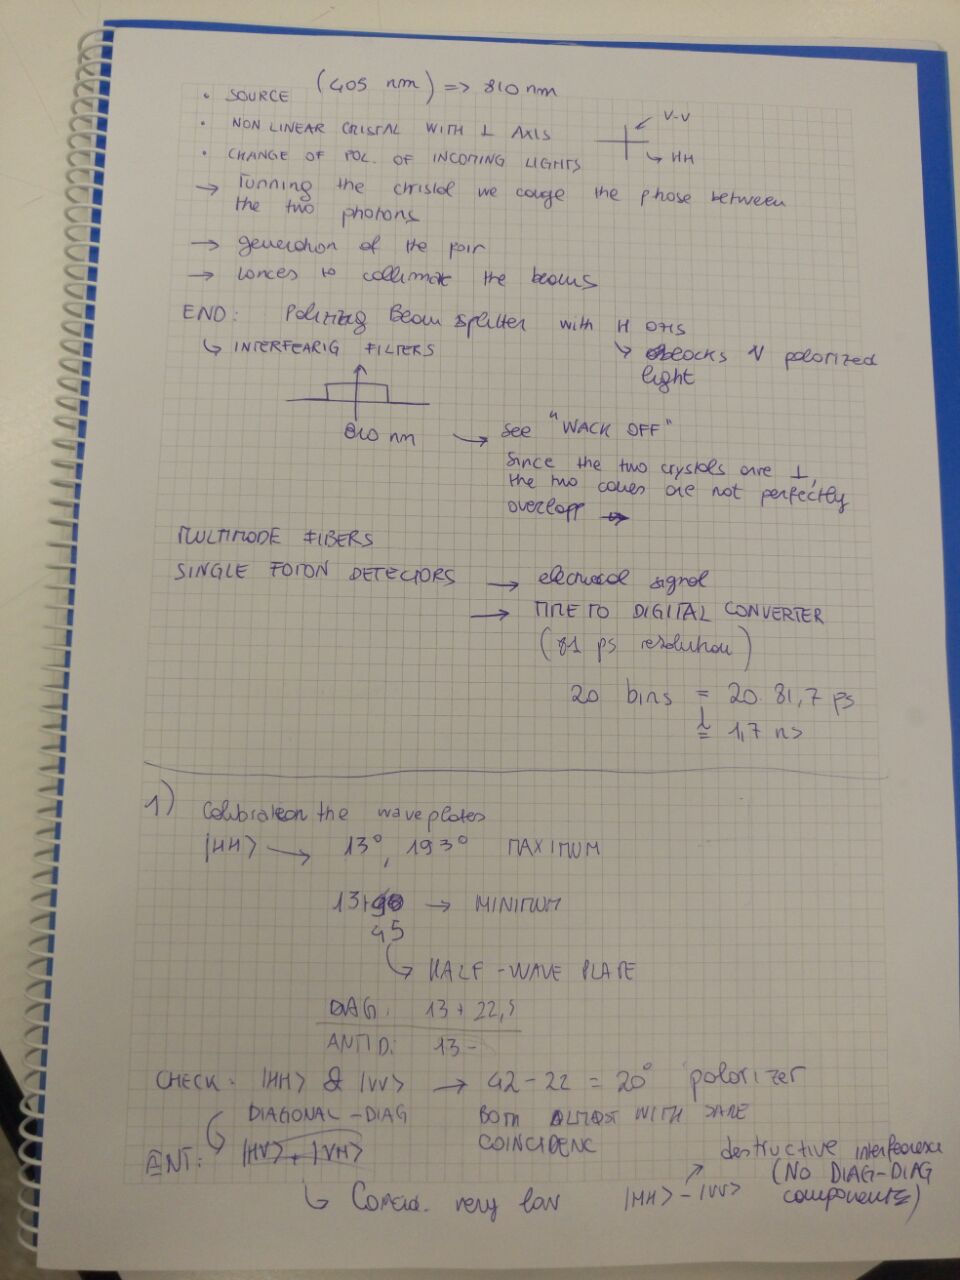 (405 nm) => 810 nm
• SOURCE
• NON LINEAR CRISTAL WITH ⊥ AXIS
V-V
HH
• CHANGE OF POL. OF INCOMING LIGHTS
→ Tunning the christal we cange the phase between
the two photons
→ generation of the pair
→ lances to collimate the beams
END: Polarizing Beam splitter with H axis
↳ INTERFEARIG FILTERS
↳ blocks V polarized
light
810 nm
→ see "WACK OFF"
Since the two crystals are ⊥,
the two cones are not perfectly
overlapp →
MULTIMODE FIBERS
SINGLE FOTON DETECTORS → electrical signal
→ TIME TO DIGITAL CONVERTER
(81 ps resolution)
20 bins = 20·81,7 ps
≅ 1,7 ns
1) Calibration the waveplates
|HH> → 13°, 193° MAXIMUM
13+90 → MINIMUM
45
↳ HALF-WAVE PLATE
DIAG: 13 + 22,5
ANTID: 13 -
CHECK: |HH> & |VV> → 42 - 22 = 20° polarizer
DIAGONAL-DIAG
BOTH ALMOST WITH SAME
COINCIDENC
ANT: |HV> + |VH>
destructive interference
(NO DIAG-DIAG
components)
↳ Concid. very low
|HH> - |VV>